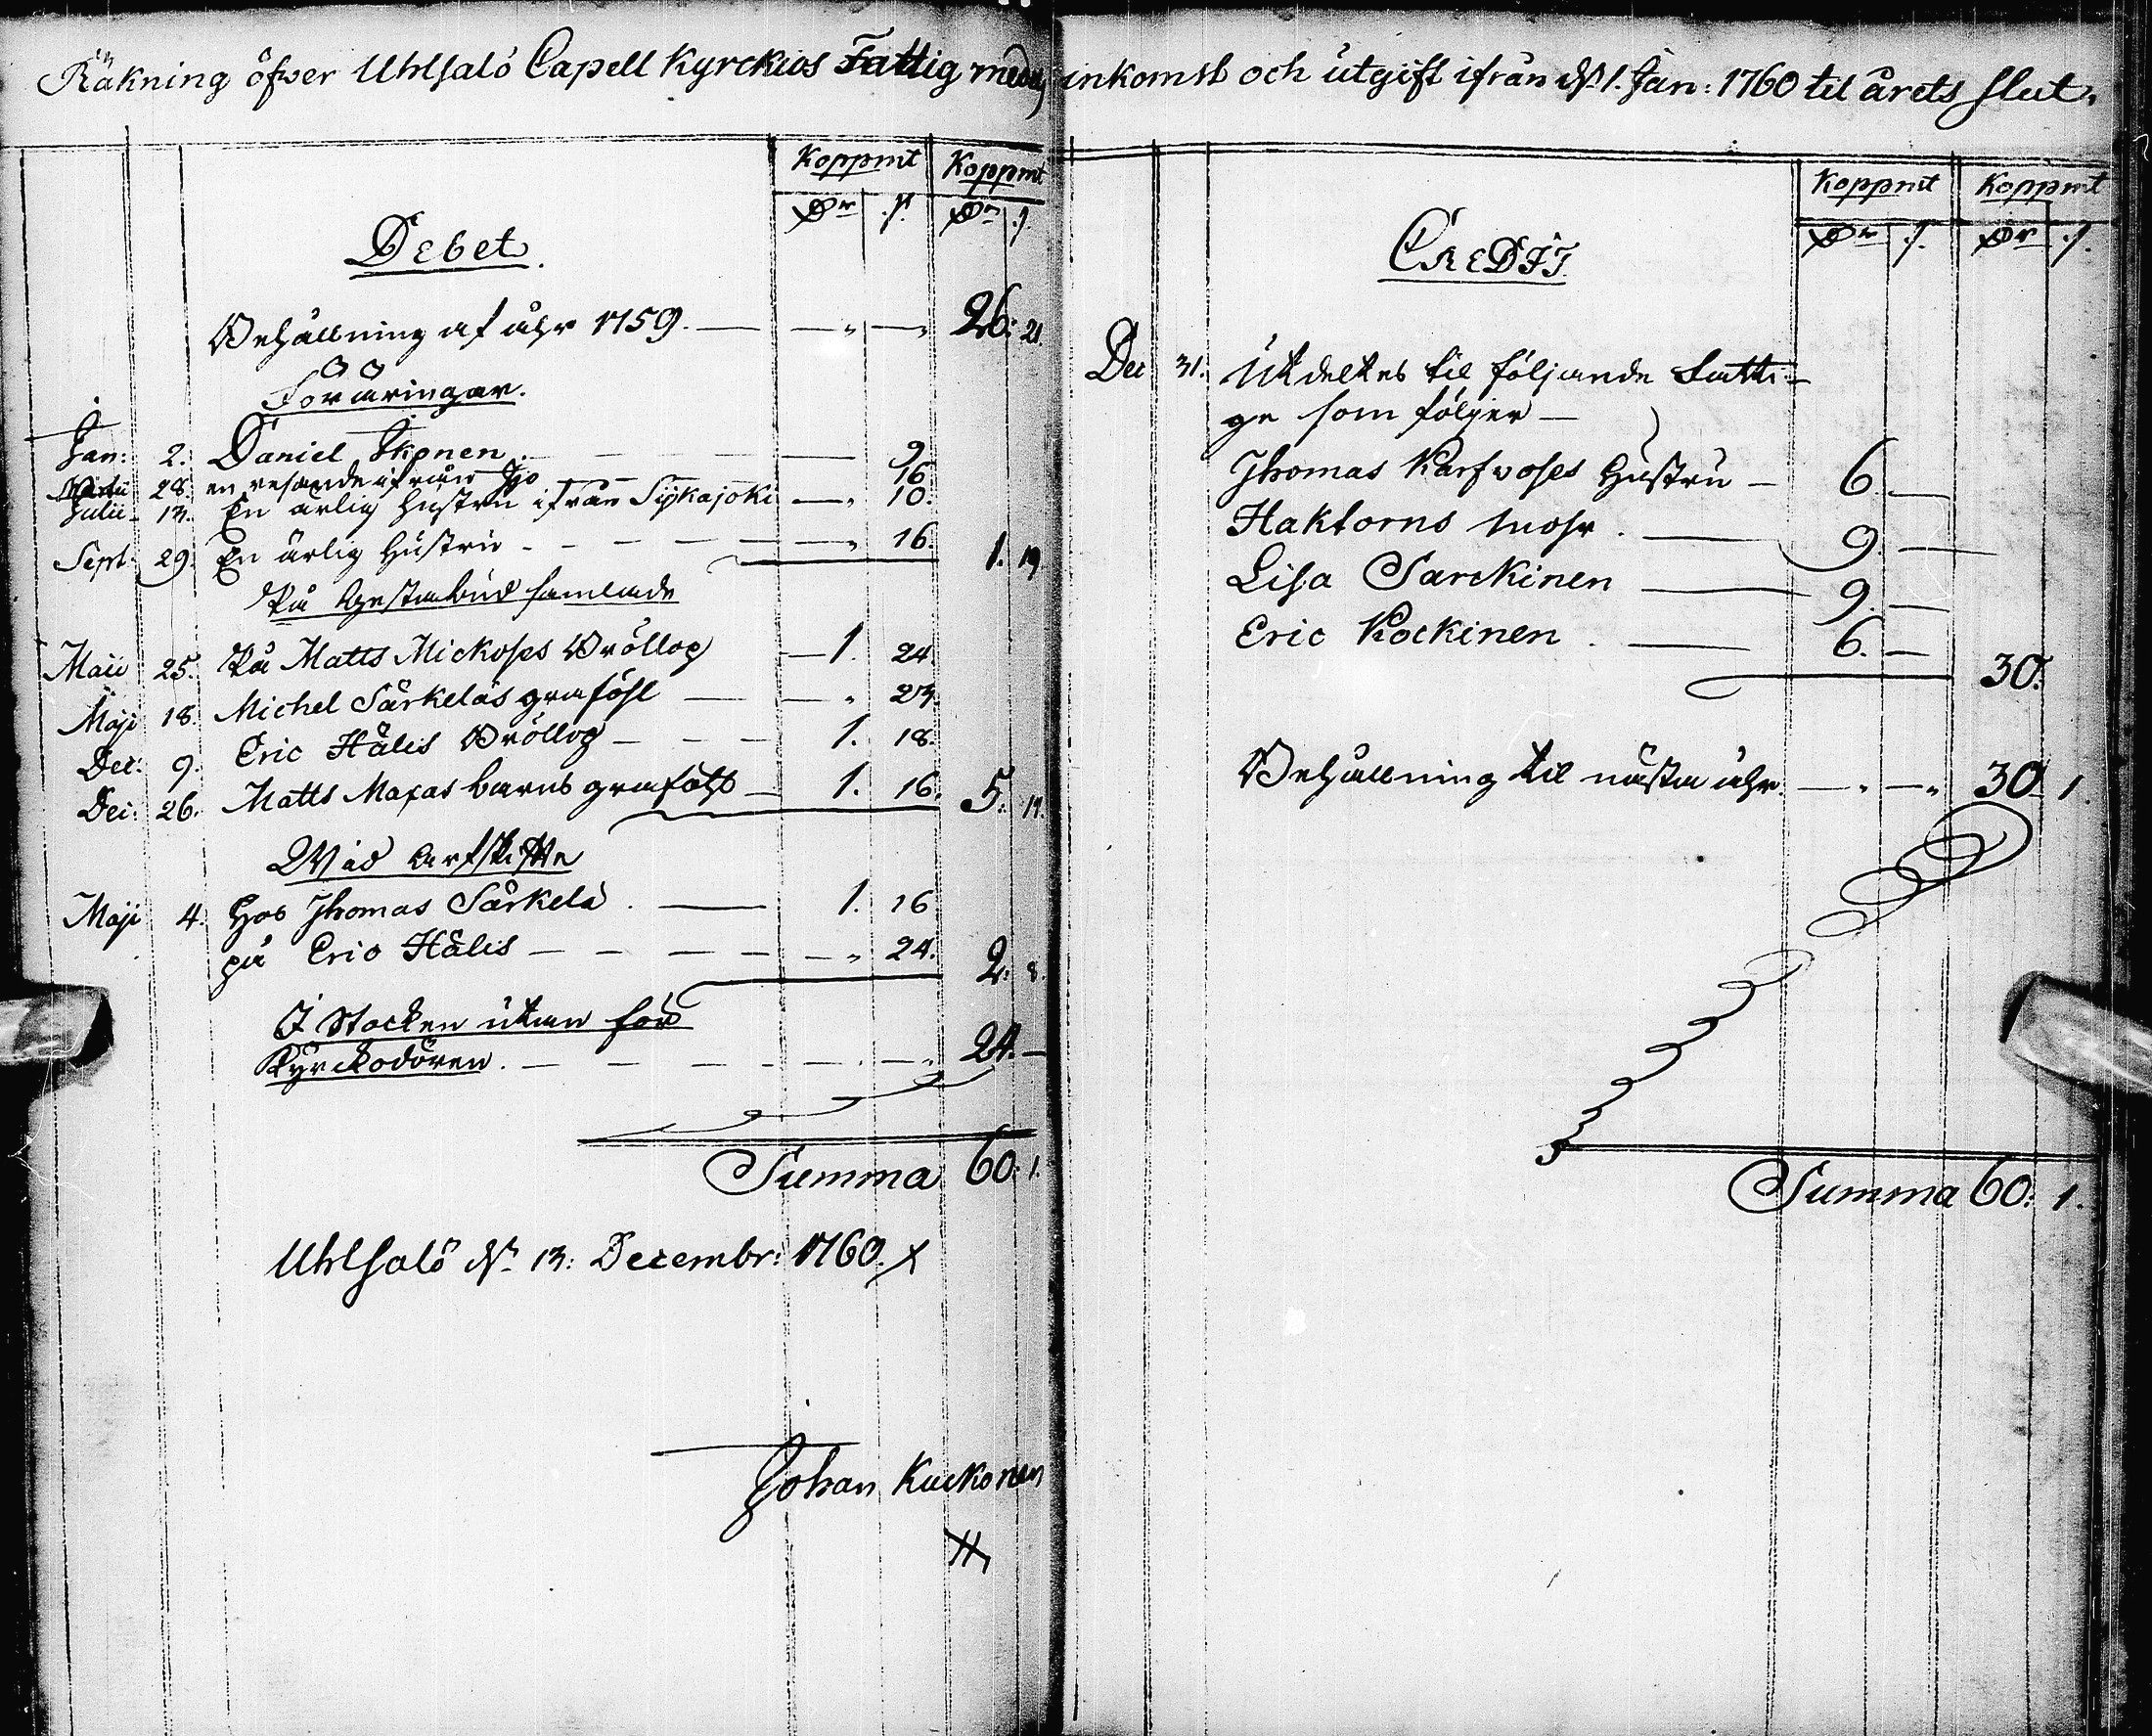 Räkning öfwer Uhlsalö Capell Kyrckios Fattig medels inkomst och utgift ifrån d. 1. Jan: 1760 til årets slut.
Koppmt Koppmt
Dr. s. Dr. s.
Debet.
Behållning af åhr 1759. — — " — " 26: 21.
Föräringar.
Jan: 2. Daniel Ikonen. — 9
Martii 28. en resande ifrån Ijo 16
Julii 13. En ärlig hustru ifrån Sijkajoki — " 10.
Sept: 29. En ärlig hustru — " 16. 1. 19
På Gästabud samlade
Maii 25. På Matts Mickoses Bröllop — 1. 24.
Maji 18. Michel Särkeläs grafföhl — " 23.
Dec: 9. Eric Hälis Bröllop — 1. 18.
Dec: 26. Matts Maxas barns grafföhl — 1. 16. 5. 17.
Wid arfskifte
Maji 4. Hos Thomas Särkelä. — 1. 16
på Eric Hälis — " 24. 2: 8.
I Stocken utan för
Kyrckodören. — " 24. —
Summa 60: 1.
Uhlsalö d. 13: Decembr: 1760.
Johan Kuckonen
Koppmt Koppmt
Dr s. Dr s.
CREDIT
Dec 31. Utdeltes til följande fatti-
ge som följer —
Thomas Karfwoses Hustru — 6. —
Haktorns mohr. — 9. —
Lisa Sarckinen — 9. —
Eric Kockinen. — 6. —
30.
Behållning til nästa åhr. — " — " 30. 1.
Summa 60: 1.